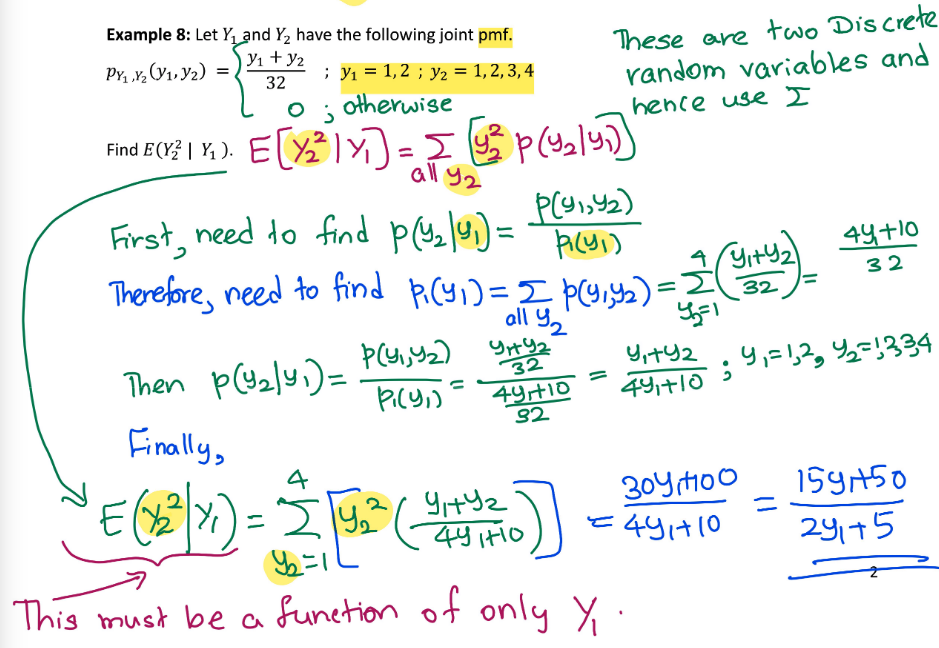 Example 8: Let Y₁ and Y₂ have the following joint pmf.
p_{Y₁,Y₂}(y₁, y₂) = { (y₁ + y₂)/32 ; y₁ = 1, 2 ; y₂ = 1, 2, 3, 4
0 ; otherwise
These are two Discrete
random variables and
hence use Σ
Find E(Y₂² | Y₁ ). E[Y₂²|Y₁] = Σ_{all y₂} [y₂² p(y₂|y₁)]
First, need to find p(y₂|y₁) = p(y₁,y₂)/p₁(y₁)
Therefore, need to find p₁(y₁) = Σ_{all y₂} p(y₁,y₂) = Σ_{y₂=1}^{4} ((y₁+y₂)/32) = (4y₁+10)/32
Then p(y₂|y₁) = p(y₁,y₂)/p₁(y₁) = ((y₁+y₂)/32)/((4y₁+10)/32) = (y₁+y₂)/(4y₁+10) ; y₁=1,2, y₂=1,2,3,4
Finally,
E(Y₂²|Y₁) = Σ_{y₂=1}^{4} [y₂² ((y₁+y₂)/(4y₁+10))] = (30y₁+100)/(4y₁+10) = (15y₁+50)/(2y₁+5)
2
This must be a function of only Y₁.